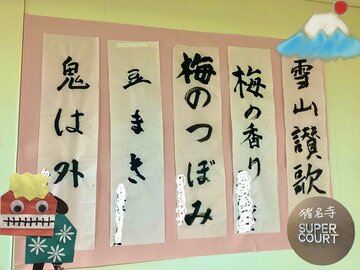 雪山讃歌
梅の香り
梅のつぼみ
豆まき
鬼は外
猪名寺
SUPER
COURT